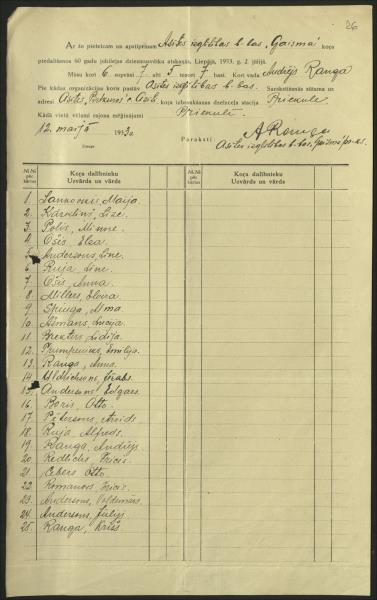 26
Ar šo pieteicam un apstiprinam Asītes izglītības b-bas „Gaisma" kora
piedalīšanos 60 gadu jubilejas dziesmusvētku atskaņās, Liepājā, 1933. g. 2. jūlijā.
Mūsu korī 6 soprani 7 alti 5 tenori 7 basi. Kori vada Andrējs Ranga
Pie kādas organizācijas koris pastāv Asītes izglītības b-bas. Sarakstīšanās vārds un
adrese Asītes, kora izbraukšanas dzelzceļa stacija Priekule
Kādā vietā vēlami rajona mēģinājumi Priekulē
12. maijā 1933.
Paraksti: A Ranga
Asītes izglītības b-bas, Gaisma
№№ pēc kārtas
Koŗa dalībnieku
Uzvārds un vārds
№№ pēc kārtas
Koŗa dalībnieku
Uzvārds un vārds
1. Maija
2. Kārkliņš, Līze
3. Polis, Minne
4. Ošis, Elza
5. Andersons, Line
6. Ruja, Line
7. Ošis, Anna
8. Millers, Elvira
9. Sprūga, Alma
10. Asmans, Lucija
11. Brekters, Lidija
12. Emilija
13. Ranga, Anna
14. Uldriksons, Jēkabs
15. Andersons Edgars
16. Boris, Otto
17. Pētersons, Arvids
18. Ruja, Alfreds
19. Ranga, Andrējs
20. Redlichs, Fricis
21. Ebers Otto
22. Romanovs, Fricis
23. Andersons, Voldemārs
24. Andersons, Jūlijs
25. Ranga, Krišs